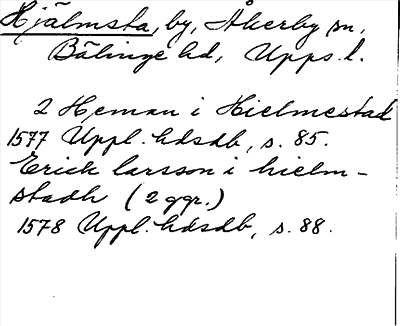 Hjälmsta, by, Åkerby sn,
Bälinge hd, Upps. l.
2 Heman i Hielmestad
1577 Uppl. hdsdb, s. 85.
Erick larsson i hielm-
stadh (2 ggr.)
1578 Uppl. hdsdb, s. 88.